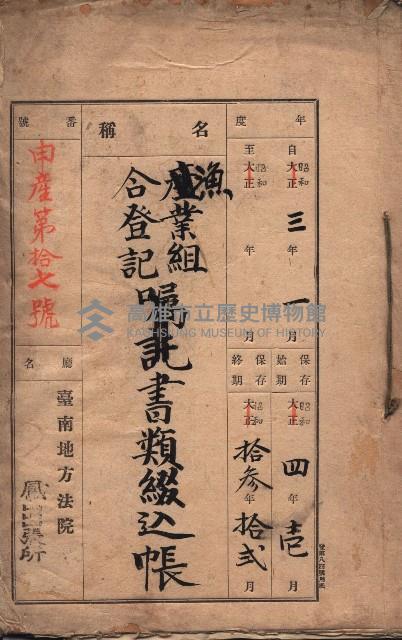 年度
自 大正 昭和 三年一月
至 大正 昭和 年 月
保存始期 大正 昭和 四年壱月
保存終期 大正 昭和 拾参年拾弐月
名稱
漁業組合登記
産
嘱託書類綴込帳
番號
申産第拾七號
廳名
臺南地方法院
鳳山出張所
高雄市立歷史博物館
KAOHSIUNG MUSEUM OF HISTORY